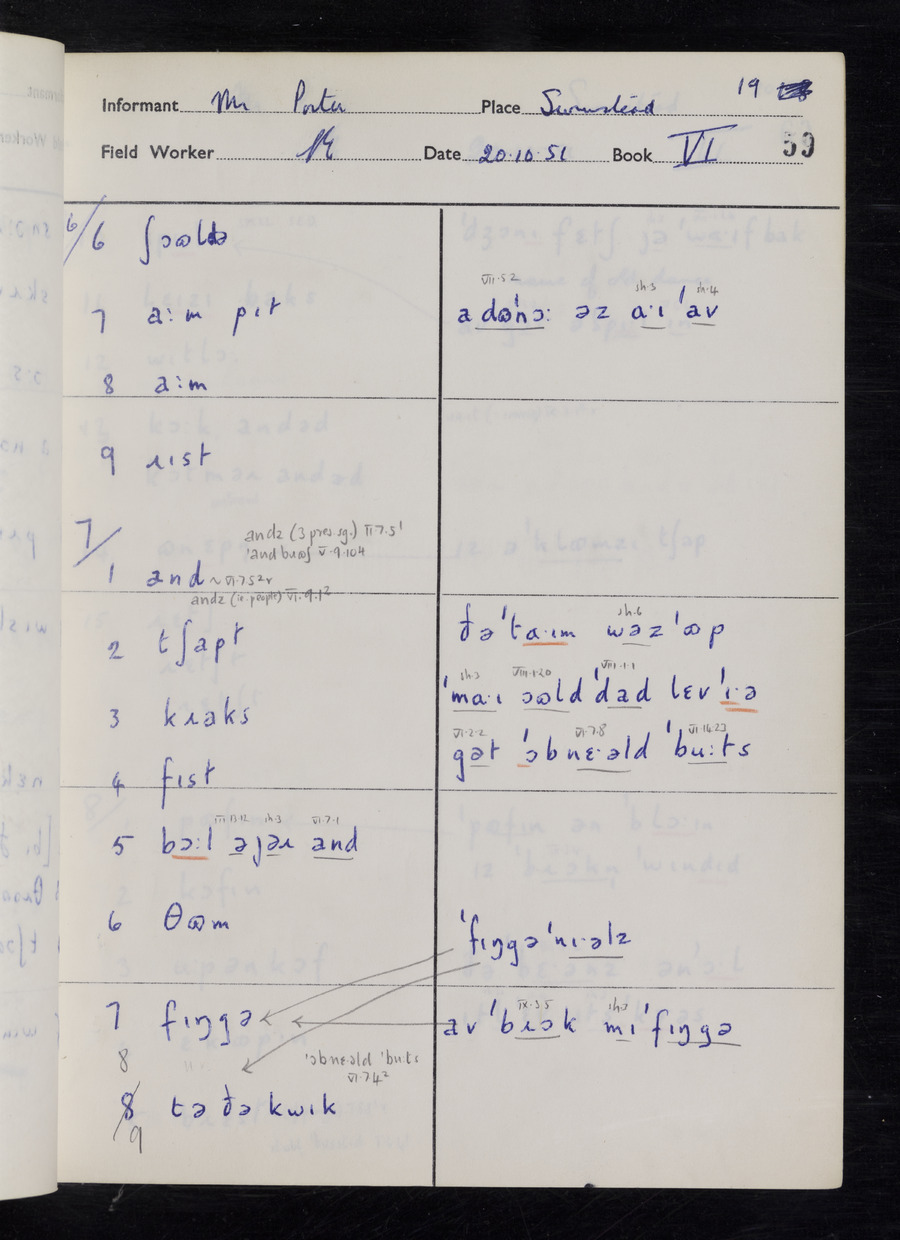 19
Informant Mr Porter Place Swinstead
Field Worker Date 20.10.51 Book VI 59
6/6 ʃɔɷldə
VII.5.2 sh.3 sh.4
7 a:m pɪt a dɷ'nɔ: əz a·ɪ 'av
8 a:m
9 ɹɪst
7/
andz (3 pres sg.) VI.7.5¹
'andbɹɷʃ V.9.10⁴
1 and ~ VI.7.5²ʳ
andz (i.e. people) VI.9.1²
sh.6
2 tʃapt ðə 'ta·ɪm wəz 'ɷp
sh.3 VIII.1.20 VIII.1.1
3 kɹaks 'ma·ɪ ɔɷld 'dad lɛv 'ɪ·ə
VI.2.2 VI.7.8 VI.14.23
4 fɪst gət 'ɔbnɛ·əld 'bu:ts
III.13.12 sh.3 VI.7.1
5 bɔ:l əjəɹ and
6 θɷm 'fɪŋgə 'nɪ·əlz
IX.3.5 sh.3
7 fɪŋgə av 'bɹɔk mɪ 'fɪŋgə
8 'ɔbnɛəld 'bu:ts
VI.7.4²
8/9 tə ðə kwɪk